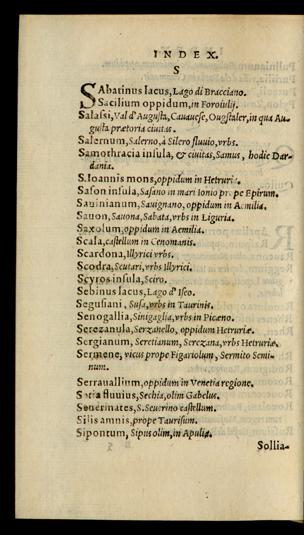 INDEX.
S
SAbatinus lacus, Lago di Bracciano.
Sacilium oppidum, in Foroiulij.
Salassi, Val d'Augusta, Cauauese, Ougstaler, in qua Au-
gusta prætoria ciuitas.
Salernum, Salerno, à Silero fluuio, vrbs.
Samothracia insula, & ciuitas, Samus, hodie Dar-
dania.
S. Ioannis mons, oppidum in Hetruria.
Sason insula, Sasano in mari Ionio prope Epirum.
Sauinianum, Sauignano, oppidum in Aemilia.
Sauon, Sauona, Sabata, vrbs in Liguria.
Saxolum, oppidum in Aemilia.
Scala, castellum in Cenomanis.
Scardona, Illyrici vrbs.
Scodra, Scutari, vrbs Illyrici.
Scyros insula, Sciro.
Sebinus lacus, Lago d'Iseo.
Segusiani, Susa, vrbs in Taurinis.
Senogallia, Sinigaglia, vrbs in Piceno.
Serezanula, Serzanello, oppidum Hetruriæ.
Sergianum, Seretianum, Serezana, vrbs Hetruriæ.
Sermene, vicus prope Figariolum, Sermito Semi-
num.
Serrauallium, oppidum in Venetia regione.
Setia fluuius, Sechia, olim Gabelus.
Seuerinates, S. Seuerino castellum.
Silis amnis, prope Taurisum.
Sipontum, Sipus olim, in Apulia.
Sollia-